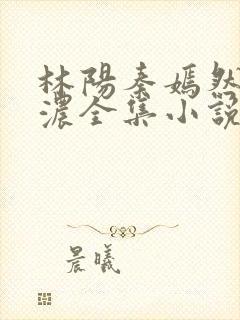 林陽秦嫣然
濃全集小說
晨曦